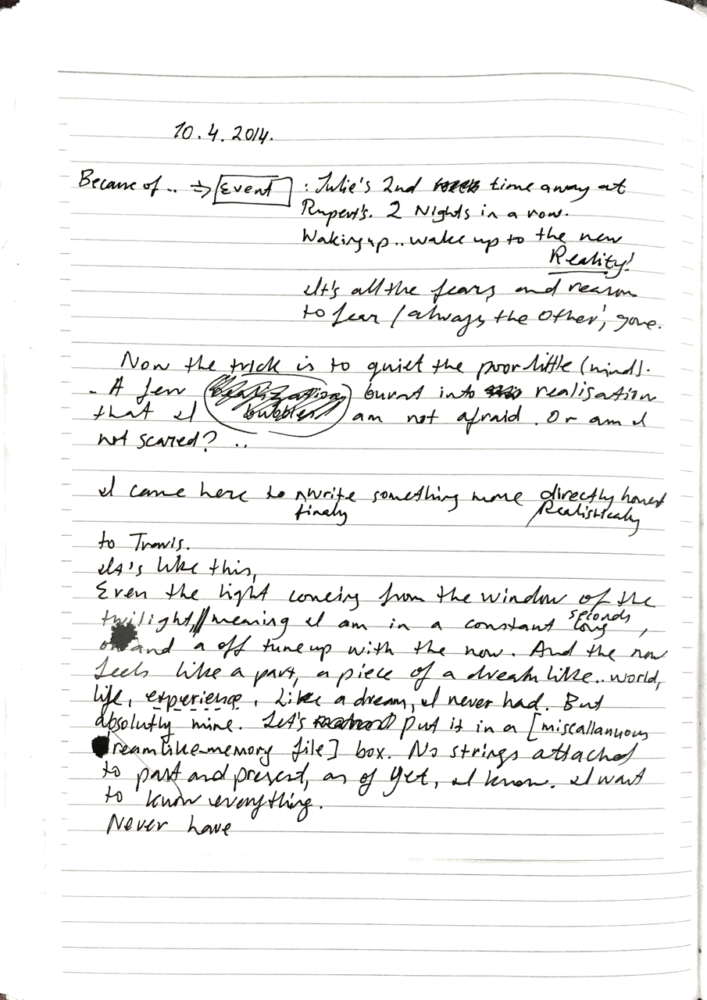 10.4.2014.
Because of .. => Event : Julie's 2nd time away at
Rupert's. 2 Nights in a row.
Waking up .. wake up to the new
Reality!
It's all the fears, and reason
to fear / always, the other, gone.
Now the trick is to quiet the poor little (mind).
- A few burnt into realisation
that I bubbles am not afraid. Or am I
not scared? ..
I came here to write something more directly honest
finaly Realistically
to Travis.
It's like this,
Even the light comeing from the window of the
twilight, // meaning I am in a constant seconds long,
and a off tune up with the now. And the now
feels like a part, a piece of a dream like.. world,
life, experience. Like a dream, I never had. But
absolutly mine. Let's put it in a [miscallanuous
reamlike-memory file] box. No strings attached
to past and present, as of yet, I know. I want
to know everything.
Never have